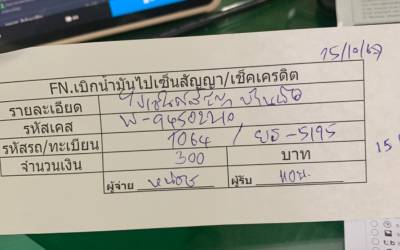 15/10/67
FN.เบิกน้ำมันไปเซ็นสัญญา/เช็คเครดิต
รายละเอียด ไปเซ็นสัญญา
รหัสเคส P-9450210
รหัสรถ/ทะเบียน 1064 / ยธ-5195
จำนวนเงิน 300 บาท
ผู้จ่าย หน่อย ผู้รับ
15